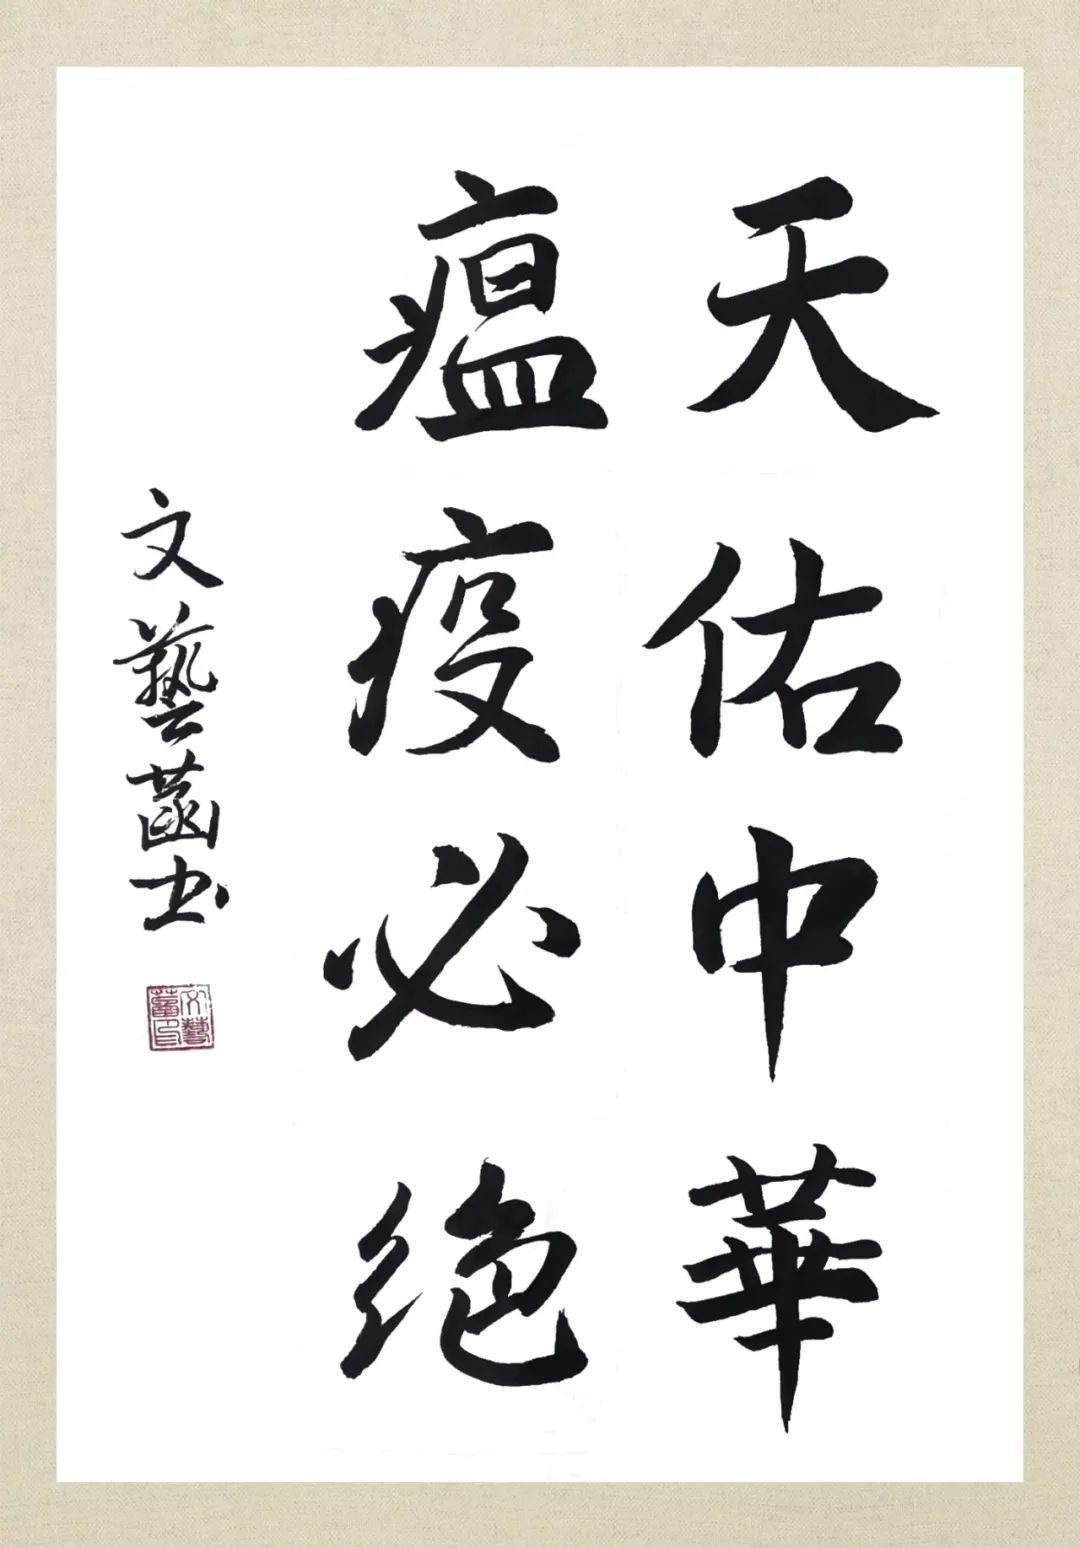 天佑中華
瘟疫必绝
文藝菡书